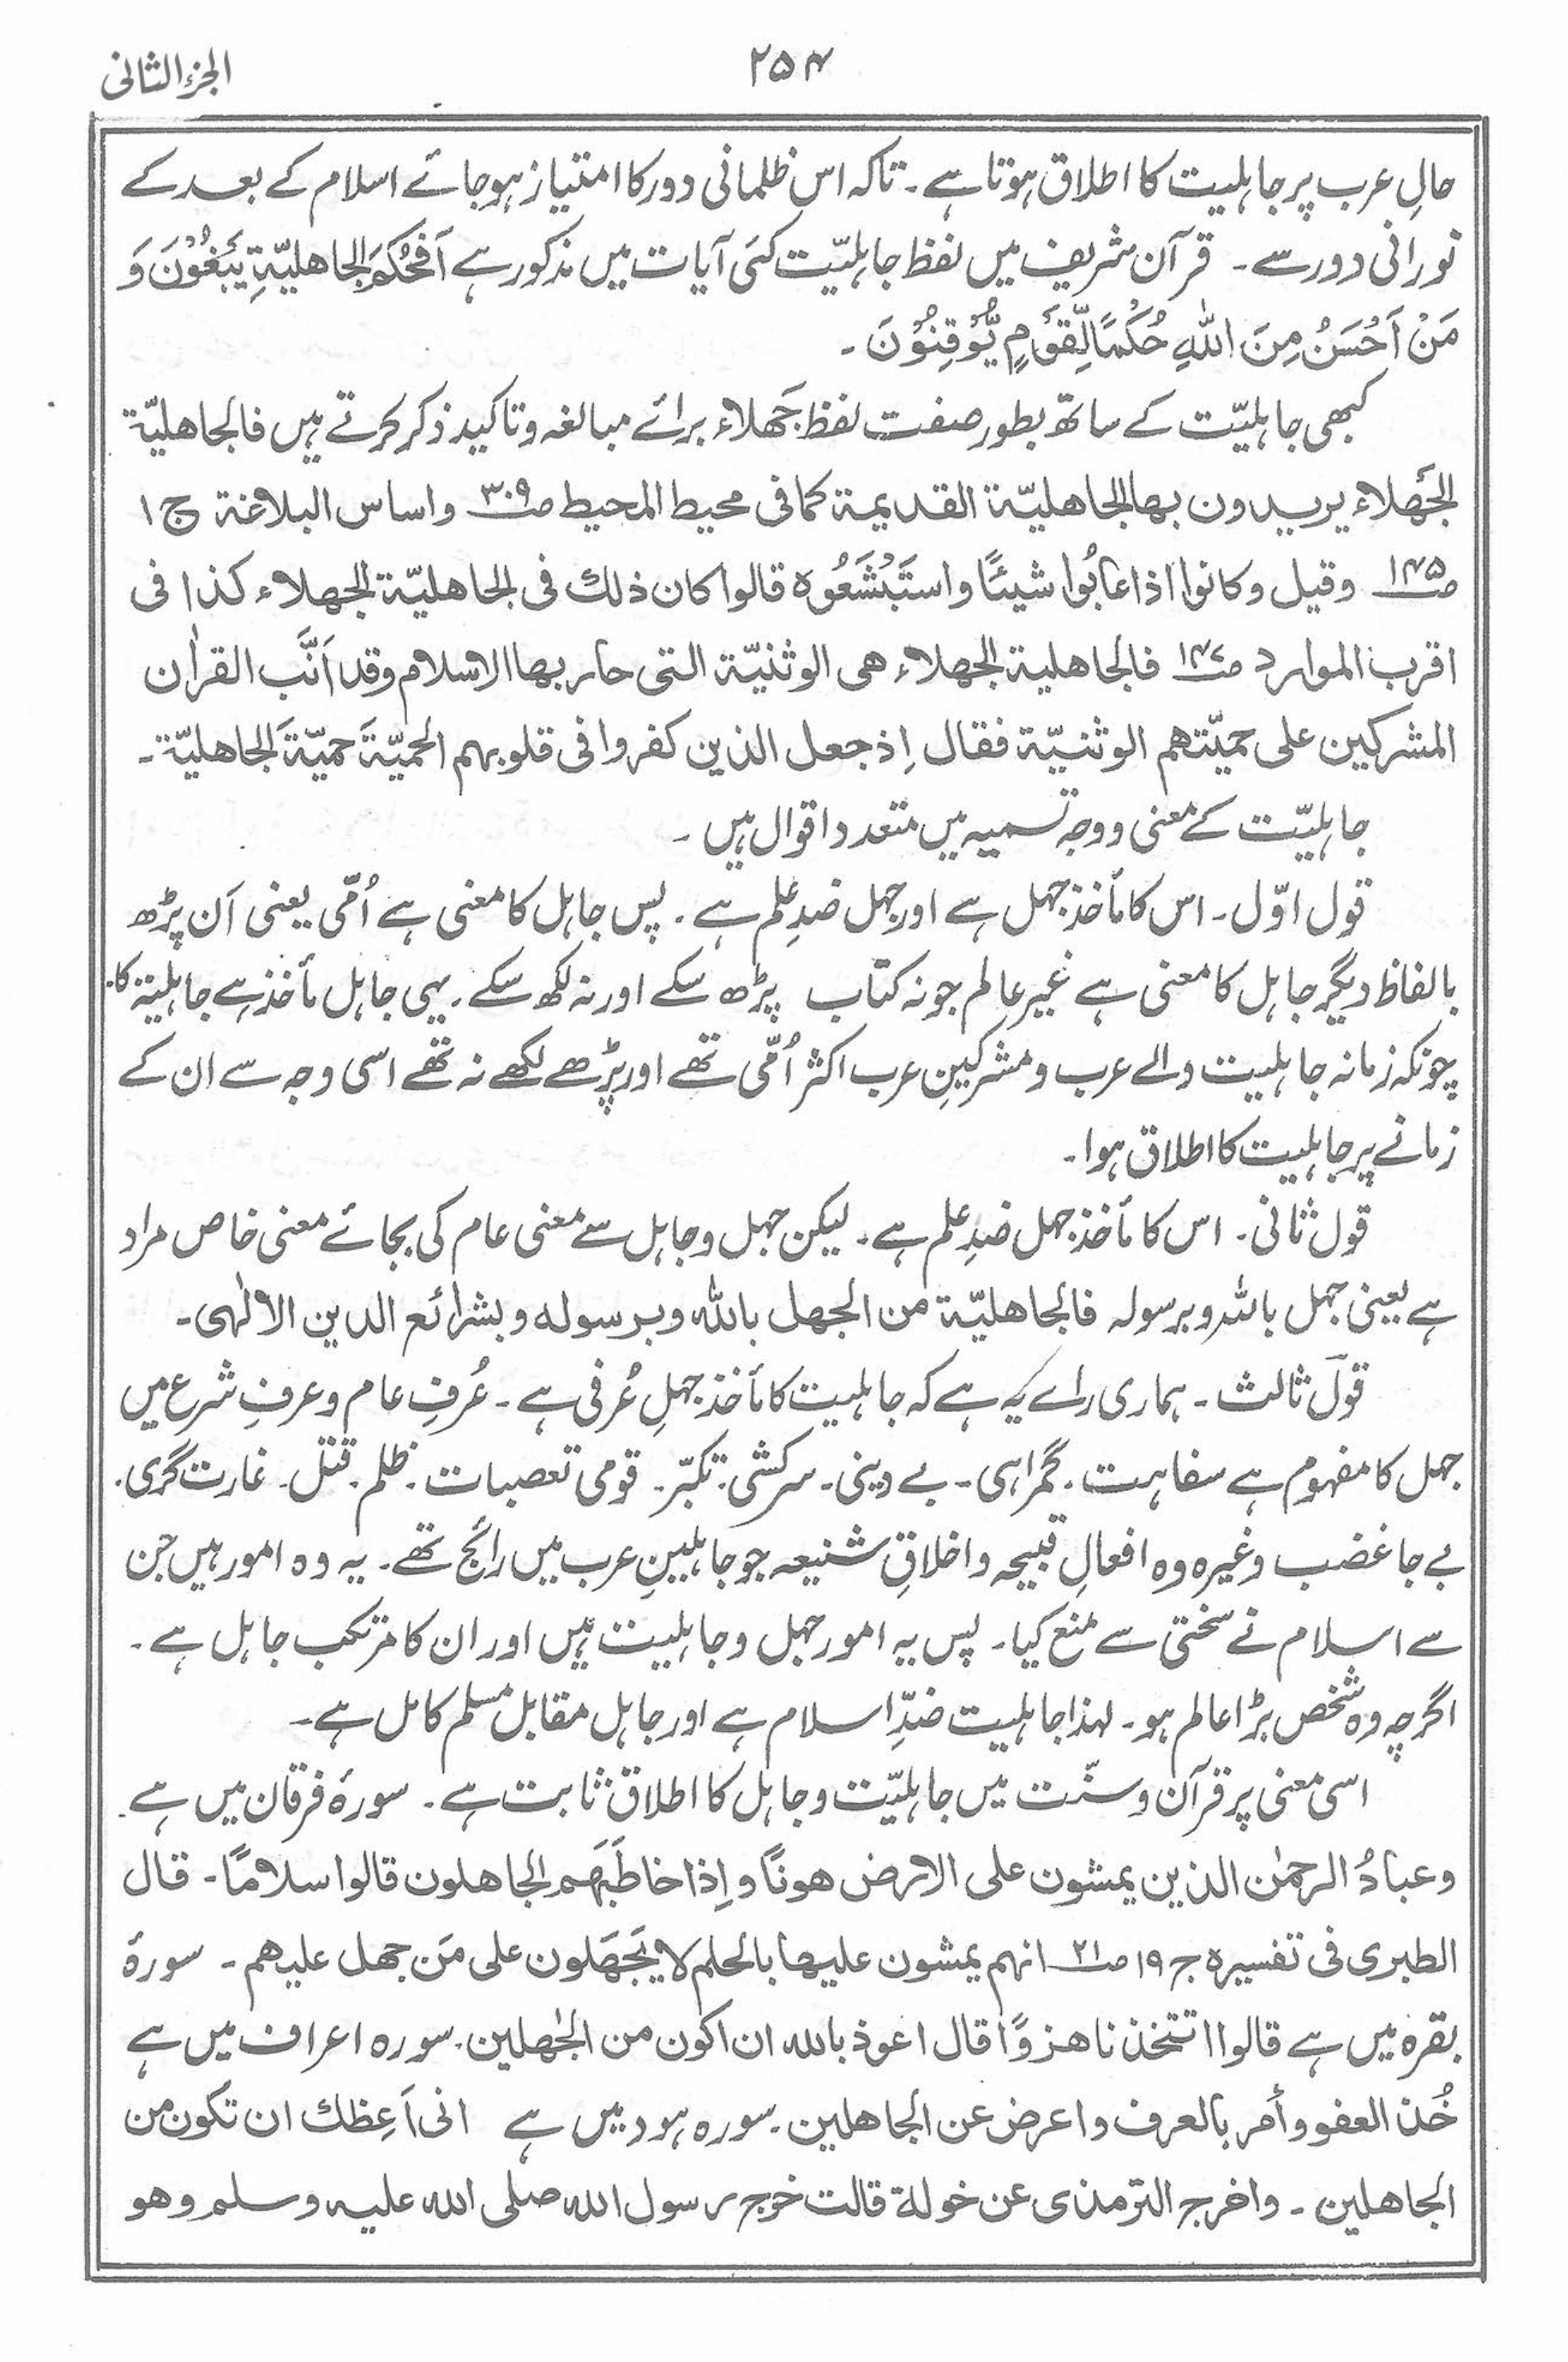 الجزء الثانی
۲۵۴
حالِ عرب پر جاہلیت کا اطلاق ہوتا ہے۔ تاکہ اس ظلمانی دور کا امتیاز ہوجائے اسلام کے بعد کے
نورانی دور سے۔ قرآن شریف میں لفظ جاہلیّت کئی آیات میں مذکور ہے اَفَحُکْمَ الجاھلیّۃِ یَبْغُوْنَ وَ
مَنْ اَحْسَنُ مِنَ اللّٰہِ حُکْمًا لِّقَوْمٍ یُّوْقِنُوْنَ۔
کبھی جاہلیّت کے ساتھ بطور صفت لفظ جَھلاء برائے مبالغہ وتاکید ذکر کرتے ہیں فالجاھلیّۃ
الجَھلاء یریدون بھا الجاھلیّۃ القدیمۃ کما فی محیط المحیط ص۳۰۹ واساس البلاغۃ ج ۱
ص۱۴۵ وقیل وکانوا اذا عابُوا شیئًا واستَبْشَعُوہ قالوا کان ذلك فی الجاھلیّۃ الجھلاء کذا فی
اقرب الموارد ص۱۴۷ فالجاھلیۃ الجھلاء ھی الوثنیّۃ التی حاربھا الاسلام وقد اَنَّب القراٰن
المشرکین علی حمیّتھم الوثنیّۃ فقال اِذ جعل الذین کفروا فی قلوبہم الحمیّۃَ حمیّۃَ الجاھلیّۃ۔
جاہلیّت کے معنی ووجہ تسمیہ میں متعدد اقوال ہیں۔
قول اوّل۔ اس کا مأخذ جہل ہے اور جہل ضدِ علم ہے۔ پس جاہل کا معنی ہے اُمّی یعنی اَن پڑھ
بالفاظ دیگر جاہل کا معنی ہے غیر عالم جو نہ کتاب پڑھ سکے اور نہ لکھ سکے۔ یہی جاہل مأخذ ہے جاہلیۃ کا۔
چونکہ زمانہ جاہلیت والے عرب ومشرکینِ عرب اکثر اُمّی تھے اور پڑھے لکھے نہ تھے اسی وجہ سے ان کے
زمانے پر جاہلیت کا اطلاق ہوا۔
قول ثانی۔ اس کا مأخذ جہل ضدِ علم ہے۔ لیکن جہل وجاہل سے معنی عام کی بجائے معنی خاص مراد
ہے یعنی جہل باللہ وبرسولہ فالجاھلیّۃ من الجھل باللّٰہ وبرسولہ وبشرائع الدین الالٰہی۔
قول ثالث۔ ہماری رائے یہ ہے کہ جاہلیت کا مأخذ جہلِ عُرفی ہے۔ عُرفِ عام وعرفِ شرع میں
جہل کا مفہوم ہے سفاہت۔ گمراہی۔ بے دینی۔ سرکشی۔ تکبّر۔ قومی تعصبات۔ ظلم۔ قتل۔ غارت گری۔
بے جا غضب وغیرہ وہ افعالِ قبیحہ واخلاقِ شنیعہ جو جاہلیینِ عرب میں رائج تھے۔ یہ وہ امور ہیں جن
سے اسلام نے سختی سے منع کیا۔ پس یہ امور جہل وجاہلیت ہیں اور ان کا مرتکب جاہل ہے۔
اگرچہ وہ شخص بڑا عالم ہو۔ لہذا جاہلیت ضدِّ اسلام ہے اور جاہل مقابل مسلم کامل ہے۔
اسی معنی پر قرآن وسنّت میں جاہلیّت وجاہل کا اطلاق ثابت ہے۔ سورۂ فرقان میں ہے۔
وعبادُ الرحمٰن الذین یمشون علی الارض ھونًا واِذا خاطَبَھم الجاھلون قالوا سلامًا۔ قال
الطبری فی تفسیرہ ج ۱۹ ص۲۱ انہم یمشون علیھا بالحلم لا یَجھَلون علی مَن جھل علیھم۔ سورۂ
بقرہ میں ہے قالوا اتتخذنا ھزوًا قال اعوذ باللہ ان اکون من الجٰھلین۔ سورہ اعراف میں ہے
خُذ العفو وأمر بالعرف واعرض عن الجاھلین۔ سورہ ہود میں ہے انی اَعِظك ان تکون من
الجاھلین۔ واخرج الترمذی عن خولۃ قالت خرج رسول اللہ صلی اللہ علیہ وسلم وھو